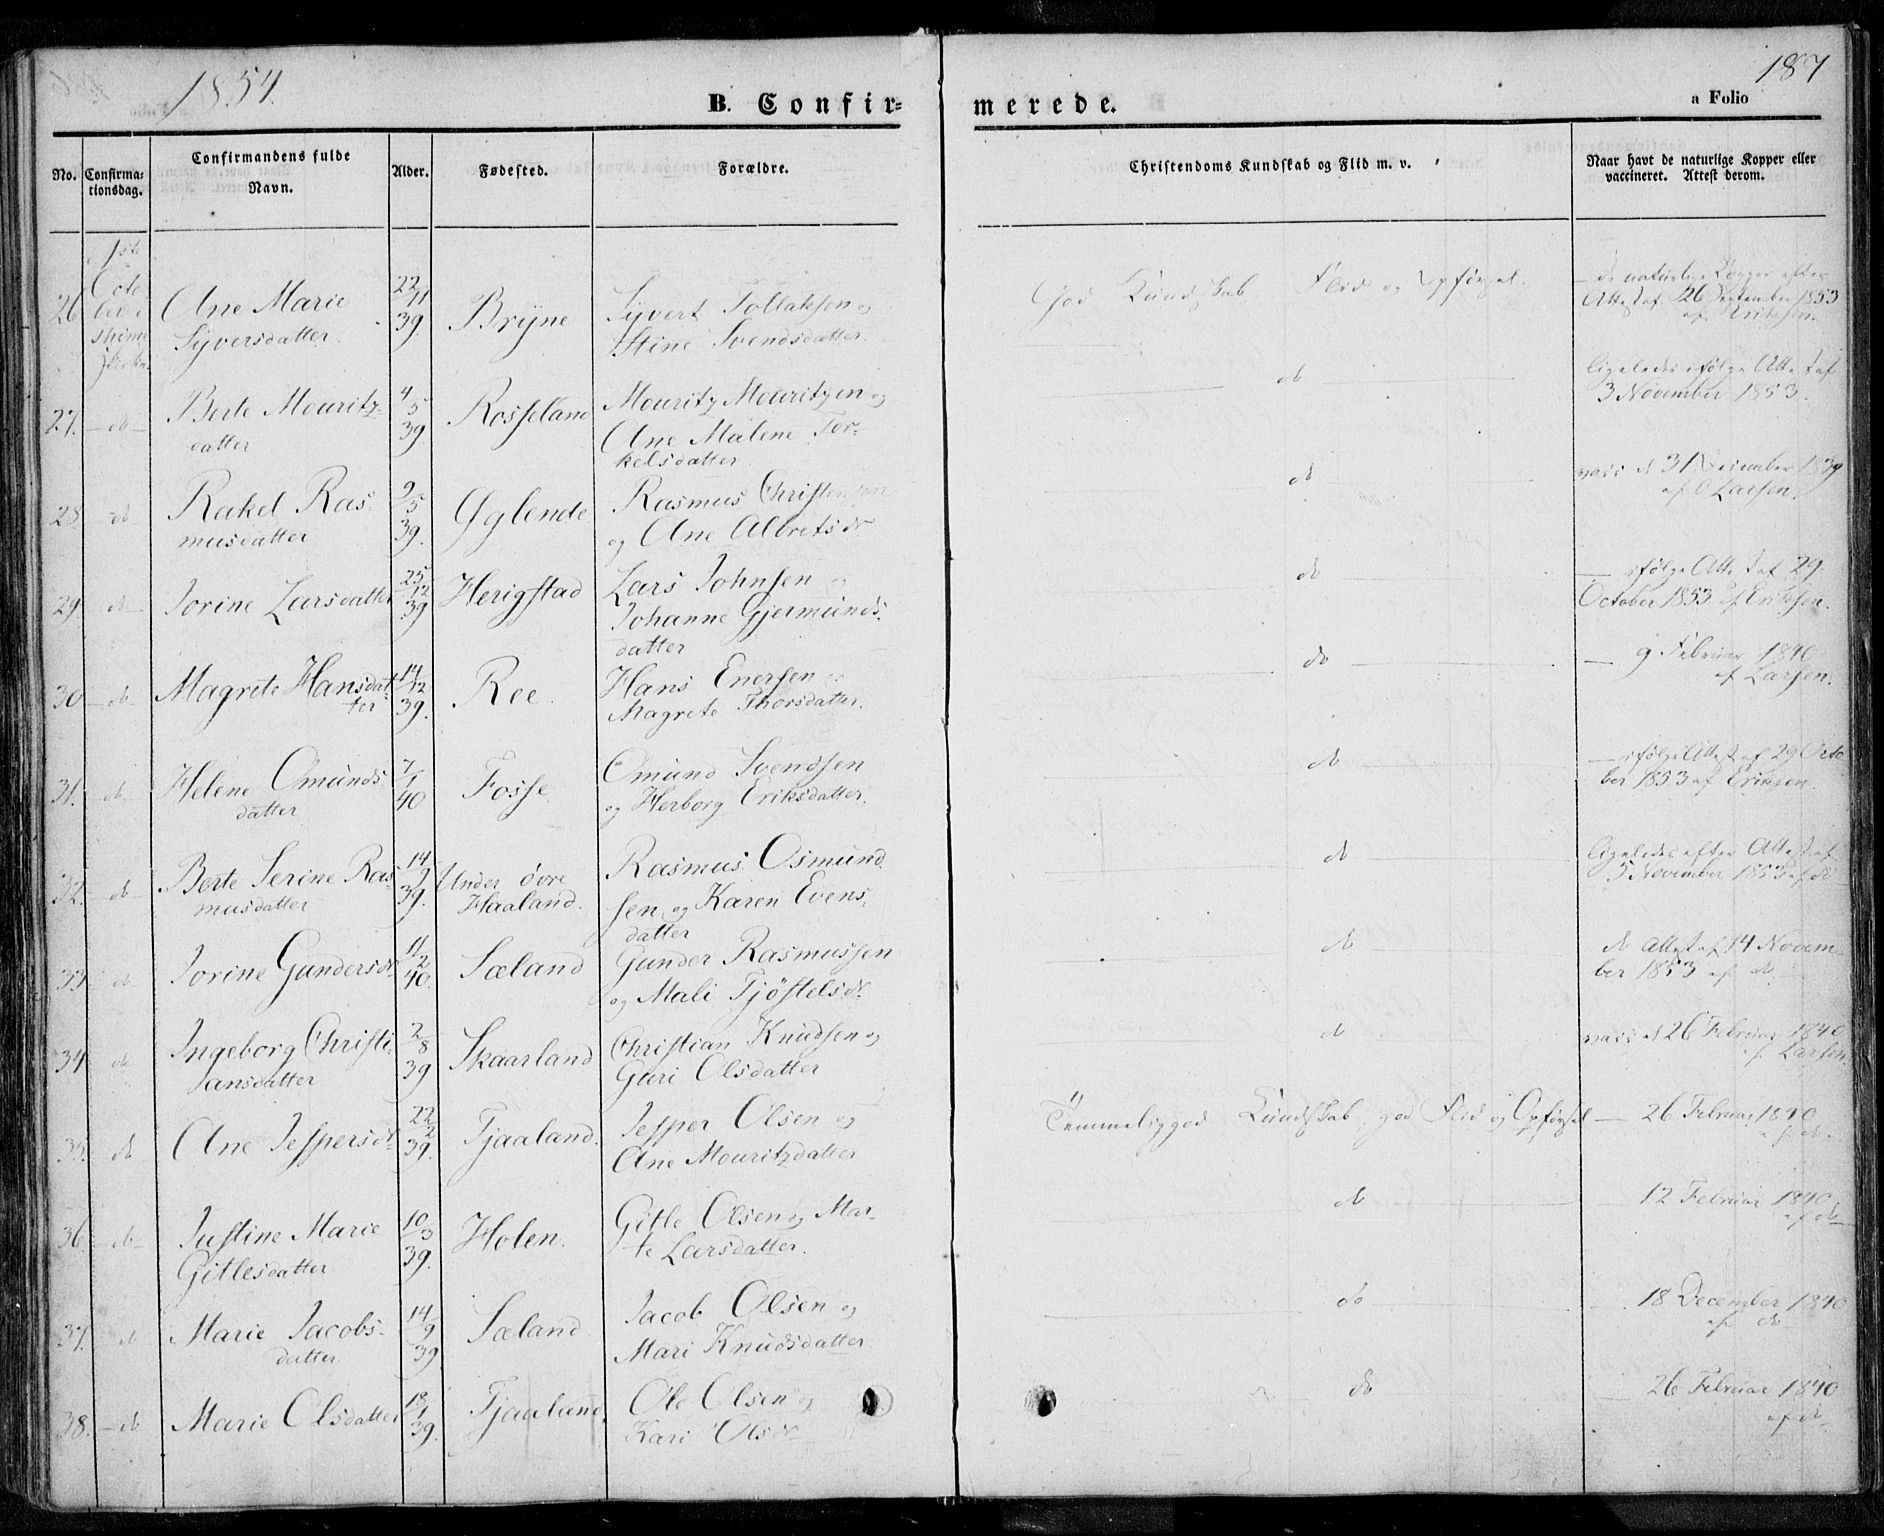 1854.
187
B. Confir=
merede.
a Folio
No.
Confirma=
tionsdag.
Confirmandens fulde
Navn.
Alder.
Fødested.
Forældre.
Christendoms Kundskab og Flid m. v.
Naar havt de naturlige Kopper eller
vaccineret. Attest derom.
1ste
Octo
26
Ane Marie
Syversdatter
22/11
39.
Bryne
Syvert Tollaksen og
Stine Svendsdatter.
God Kundskab Flid og Opførsel.
de naturlige Kopper efter
Attest af 26 September 1853
af Eriksen.
27.
do
Berte Mouritz
datter
4/5
39
Rosseland
Mouritz Mouritzen og
Ane Malene Tor=
kelsdatter
do
ligeledes ifølge Attest af
3 November 1853.
28
do
Rakel Ras=
musdatter
9/5
39.
Øglende
Rasmus Christensen
og Ane Albretsdr
do
vacc d 31 December 1839
af Larsen.
29.
do
Jorine Larsdatter
25/12
39
Herigstad
Lars Johnsen og
Johanne Gjermunds=
datter
do
ifølge Attest af 29
October 1853 af Eriksen.
30
do
Magrete Hansdat=
ter
14/12
39.
Ree.
Hans Enersen og
Magrete Thorsdatter.
do
9 Februar 1840
af Larsen.
31.
do
Helene Omunds=
datter
7/1
40
Fosse.
Omund Svendsen
og Herborg Eriksdatter.
do
ifølge Attest af 29 Octo
ber 1853 af Eriksen.
32.
do
Berte Serine Ras=
musdatter
14/9
39.
Under øvre
Haaland.
Rasmus Osmund
sen og Karen Evens=
datter
do
ligeledes efter Attest af
5 November 1853 af do
33.
do
Jorine Gundersdr
11/2
40.
Sæland
Gunder Rasmussen
og Mali Tjøstelsdr.
do
do Attest af 14 Novem=
ber 1853 af do
34
do
Ingeborg Christi=
ansdatter
2/8
39
Skaarland
Christian Knudsen og
Guri Olsdatter
do
vacc d 26 Februar 1840
af Larsen.
35.
do
Ane Jespersdr
22/2
39.
Tjaaland.
Jesper Olsen og
Ane Mouritzdatter
Temmelig god Kundskab, god Flid og Opførsel
26 Februar 1840
af do.
36
do
Justine Marie
Gitlesdatter
10/3
39.
Holen.
Gitle Olsen og Mar=
te Larsdatter.
do
12 Februar 1840
af do
37.
do
Marie Jacobs=
datter
14/9
39
Sæland
Jacob Olsen og
Mari Knudsdatter
do
18 December 1840
af do
38.
do
Marie Olsdatter
13/1
39.
Tjaaland.
Ole Olsen og
Kari Olsdr
do
26 Februar 1840
af do